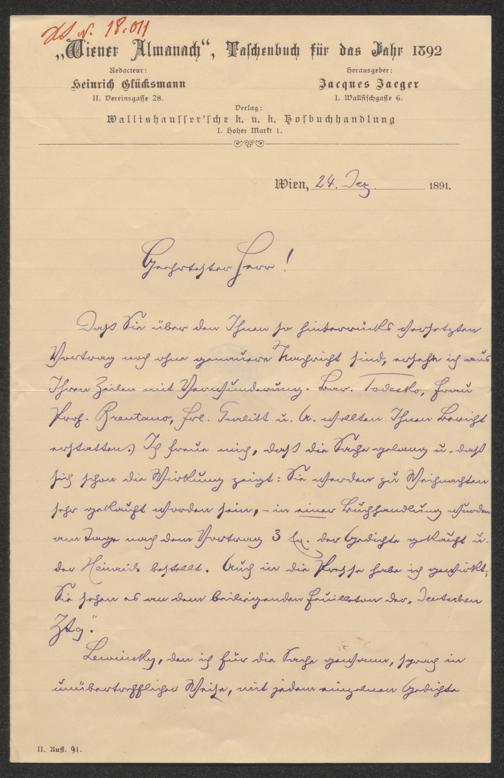 18.011
„Wiener Almanach“, Taschenbuch für das Jahr 1892
Redacteur:
Heinrich Glücksmann
II. Vereinsgasse 28.
Herausgeber:
Jacques Jaeger
I. Wallfischgasse 6.
Verlag:
Wallishausser'sche k. u. k. Hofbuchhandlung
I. Hoher Markt 1.
Wien, 24. Dez. 1891.
Geehrtester Herr!
Daß Sie über den Ihnen so hinterrücks versetzten
Vortrag noch ohne genauere Nachricht sind, ersehe ich aus
Ihren Zeilen mit Verwunderung. Bar. Todesko, Frau
Prof. Brentano, Frl. u. A. wollten Ihnen Bericht
erstatten. Ich freue mich, daß die Sache gelang u. daß
sich schon die Wirkung zeigt: Sie werden zu Weihnachten
sehr gekauft worden sein, – in einer Buchhandlung wurden
am Tage nach dem Vortrag 3 Ex. der Gedichte gekauft u.
der Heinrich bestellt. Auch in die Presse habe ich gewirkt;
Sie sehen es an dem beiliegenden Feuilleton der „Deutschen
Ztg“.
Lewinsky, den ich für die Sache gewann, sprach in
unübertrefflicher Weise, mit jedem einzelnen Gedichte
II. Aufl. 91.